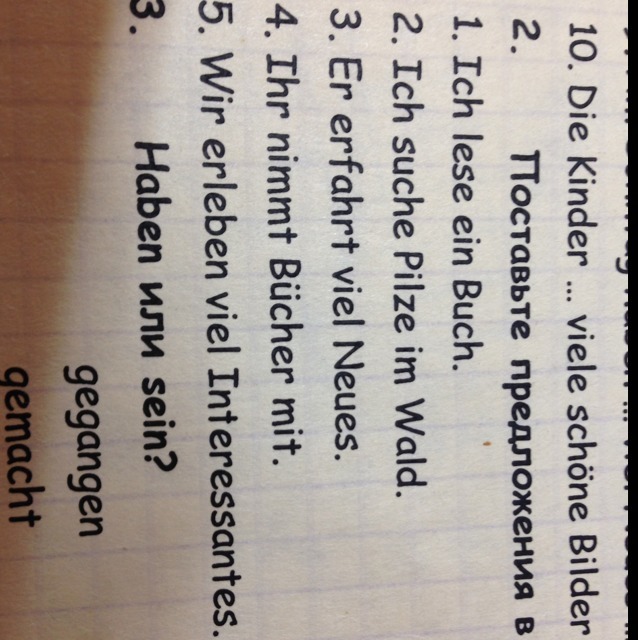 10. Die Kinder ... viele schöne Bilder
2. Поставьте предложения в
1. Ich lese ein Buch.
2. Ich suche Pilze im Wald.
3. Er erfahrt viel Neues.
4. Ihr nimmt Bücher mit.
5. Wir erleben viel Interessantes.
3. Haben или sein?
gegangen
gemacht